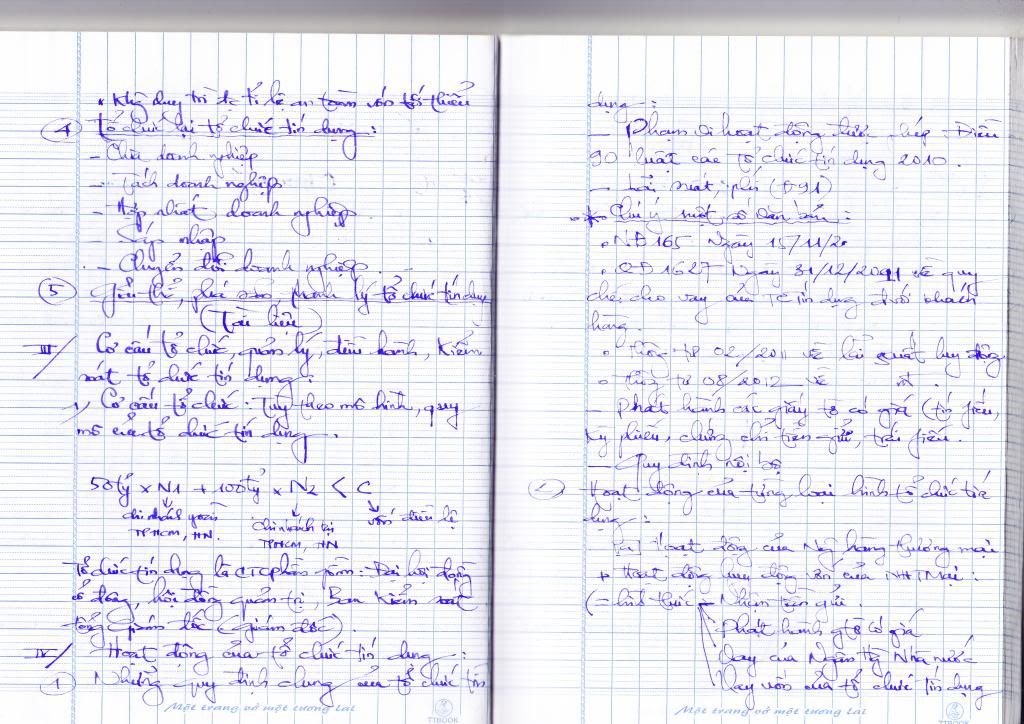 * Không duy trì đc tỉ lệ an toàn vốn tối thiểu
④ Tổ chức lại tổ chức tín dụng :
- Chia doanh nghiệp
- Tách doanh nghiệp
- Hợp nhất doanh nghiệp
- Sáp nhập
- Chuyển đổi doanh nghiệp.
⑤ Giải thể, phá sản, thanh lý tổ chức tín dụng
(Tài liệu)
III/ Cơ cấu tổ chức, quản lý, điều hành, kiểm
soát tổ chức tín dụng :
1, Cơ cấu tổ chức : Tùy theo mô hình, quy
mô của tổ chức tín dụng.
50tỷ x N1 + 100tỷ x N2 < C
chi nhánh ngoài TPHCM, HN.
chi nhánh tại TPHCM, HN
vốn điều lệ
Tổ chức tín dụng là CTCPhần gồm : Đại hội đồng
cổ đông, hội đồng quản trị, Ban kiểm soát
tổng giám đốc (giám đốc).
IV/ Hoạt động của tổ chức tín dụng :
① Những quy định chung của tổ chức tín
Một trang vở một tương lai
TTBOOK
dụng :
- Phạm vi hoạt động được phép : Điều
90 luật các tổ chức tín dụng 2010.
- Lãi suất, phí (Đ91)
* Chú ý một số văn bản :
• NĐ 165 Ngày 15/11/2
• QĐ 1627 Ngày 31/12/2001 về quy
chế cho vay của TC tín dụng đ với khách
hàng.
• Thông tư 02/2011 về lãi suất huy động
• Thông tư 08/2012 về
- Phát hành các giấy tờ có giá (tín phiếu,
kỳ phiếu, chứng chỉ tiền gửi, trái phiếu.
- Quy định nội bộ
② Hoạt động của từng loại hình tổ chức tín
dụng :
Hoạt động của Ngân hàng thương mại
+ Hoạt động huy động vốn của NHTMại :
(- hình thức - Nhận tiền gửi.
Phát hành gtờ có giá
Vay của Ngân hàng Nhà nước
Vay vốn của tổ chức tín dụng
Một trang vở một tương lai
TTBOOK